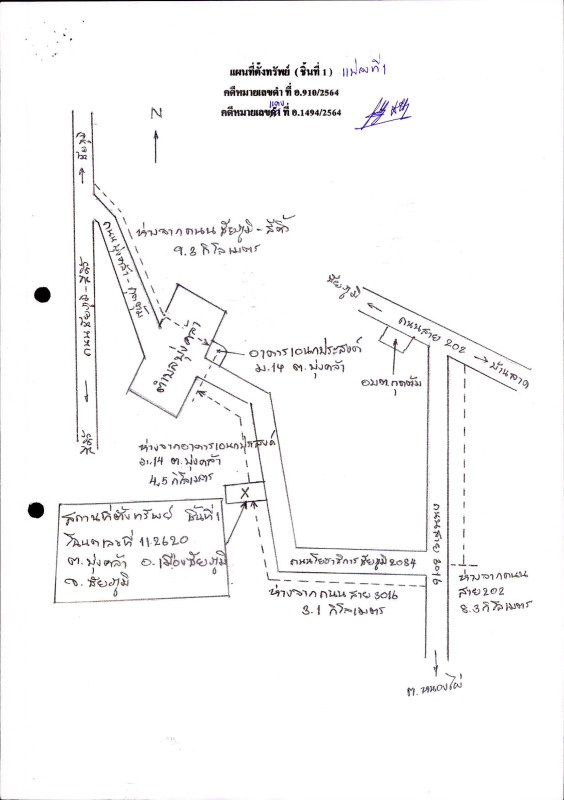 แผนที่ตั้งทรัพย์ ( ชิ้นที่ 1 ) แปลงที่ 1
คดีหมายเลขดำ ที่ อ.910/2564
แดง
คดีหมายเลขดำ ที่ อ.1494/2564
N
ชัยภูมิ
ห่างจากถนน ชัยภูมิ - สีคิ้ว
9.3 กิโลเมตร
ถนนชัยภูมิ-สีคิ้ว
สีคิ้ว
ตำบลบุ่งคล้า
อาคารเอนกประสงค์
ม.14 ต.บุ่งคล้า
ชัยภูมิ
ถนนสาย 202
บ้านลาด
อบต.กุดตุ้ม
ห่างจากอาคารเอนกประสงค์
ม.14 ต.บุ่งคล้า
4.5 กิโลเมตร
X
สถานที่ตั้งทรัพย์ ชิ้นที่ 1
โฉนดเลขที่ 112620
ต.บุ่งคล้า อ.เมืองชัยภูมิ
จ.ชัยภูมิ
ถนนโยธาธิการชัยภูมิ 2034
ถนนสาย 3016
ห่างจากถนนสาย 3016
3.1 กิโลเมตร
ห่างจากถนน
สาย 202
8.3 กิโลเมตร
ต.หนองไผ่